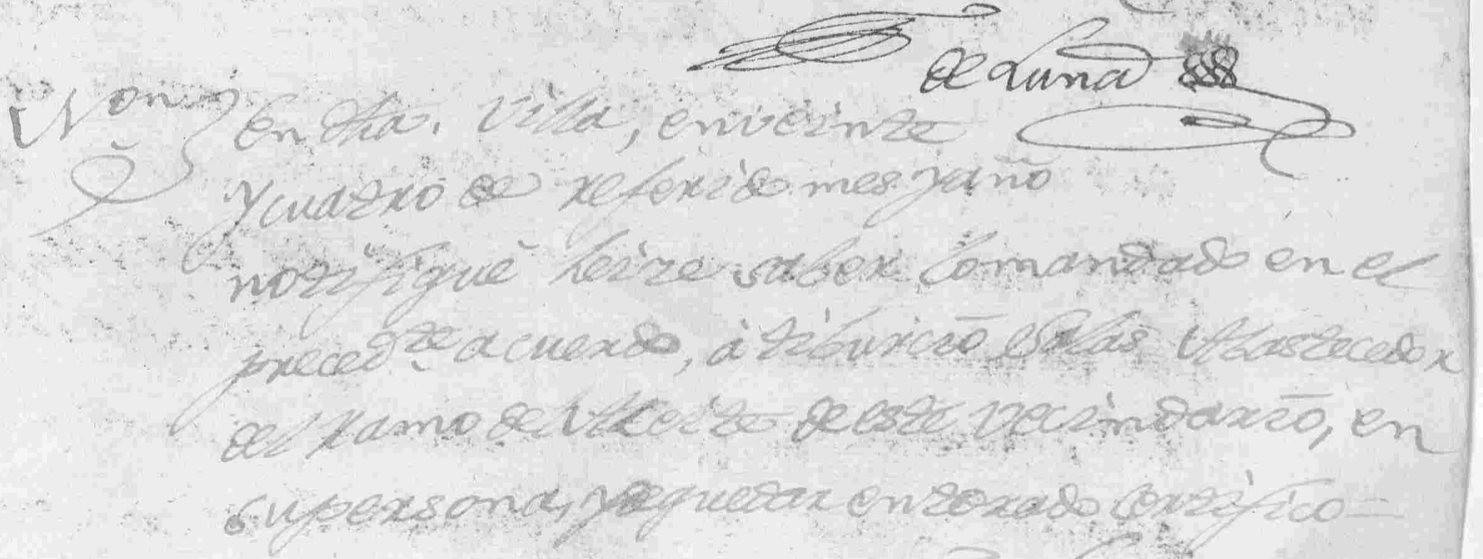 de Luna
Non
En dha. Villa, en veinte
y cuatro de referido mes y año
notifiqué heize saber lo mandado en el
preced.te acuerdo, à tiburcio Salas Abastecedor
del ramo de Aceite de este vecindario, en
su persona, y de quedar enterado certifico =